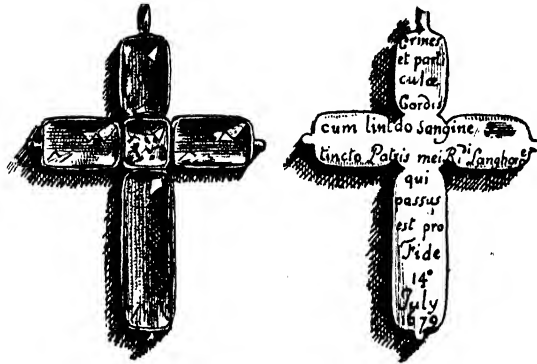 Crines
et parti
culæ
Cordis
cum linteo Sangine
tincto Patris mei Rdi Langhorne
qui
passus
est pro
Fide
14º
July
1679